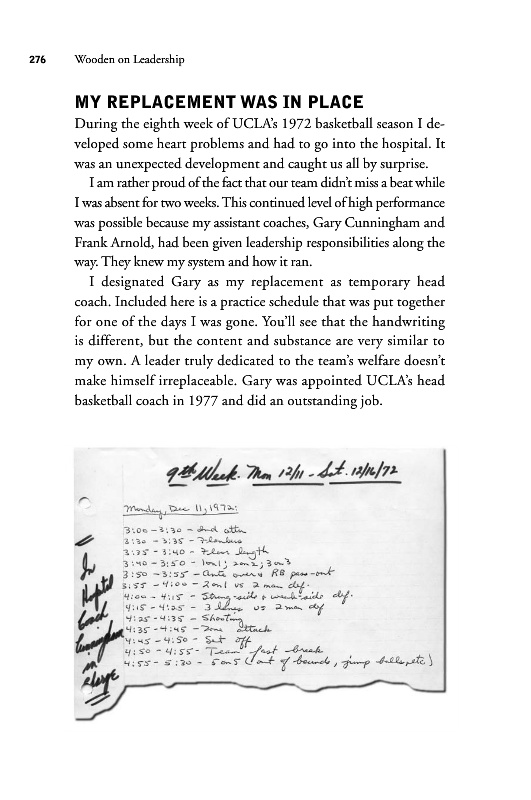 276 Wooden on Leadership
MY REPLACEMENT WAS IN PLACE
During the eighth week of UCLA's 1972 basketball season I de-
veloped some heart problems and had to go into the hospital. It
was an unexpected development and caught us all by surprise.
I am rather proud of the fact that our team didn't miss a beat while
I was absent for two weeks. This continued level of high performance
was possible because my assistant coaches, Gary Cunningham and
Frank Arnold, had been given leadership responsibilities along the
way. They knew my system and how it ran.
I designated Gary as my replacement as temporary head
coach. Included here is a practice schedule that was put together
for one of the days I was gone. You'll see that the handwriting
is different, but the content and substance are very similar to
my own. A leader truly dedicated to the team's welfare doesn't
make himself irreplaceable. Gary was appointed UCLA's head
basketball coach in 1977 and did an outstanding job.
9th Week. Mon 12/11 - Sat. 12/16/72
Monday, Dec 11, 1972:
3:00 - 3:30 - 2nd attn
3:30 - 3:35 -
3:35 - 3:40 - Floor length
3:40 - 3:50 - 1on1; 2on2; 3on3
3:50 - 3:55 - over & RB pass-out
3:55 - 4:00 - 2on1 vs 2 man def.
4:00 - 4:15 - Strong-side & weak-side def.
4:15 - 4:25 - 3 lanes vs 2 man def
4:25 - 4:35 - Shooting
4:35 - 4:45 - Zone attack
4:45 - 4:50 - Set off
4:50 - 4:55 - Team fast break
4:55 - 5:30 - 5on5 (out of bounds, jump balls, etc)
In
Hospital
Coach
Cunningham
in
Charge